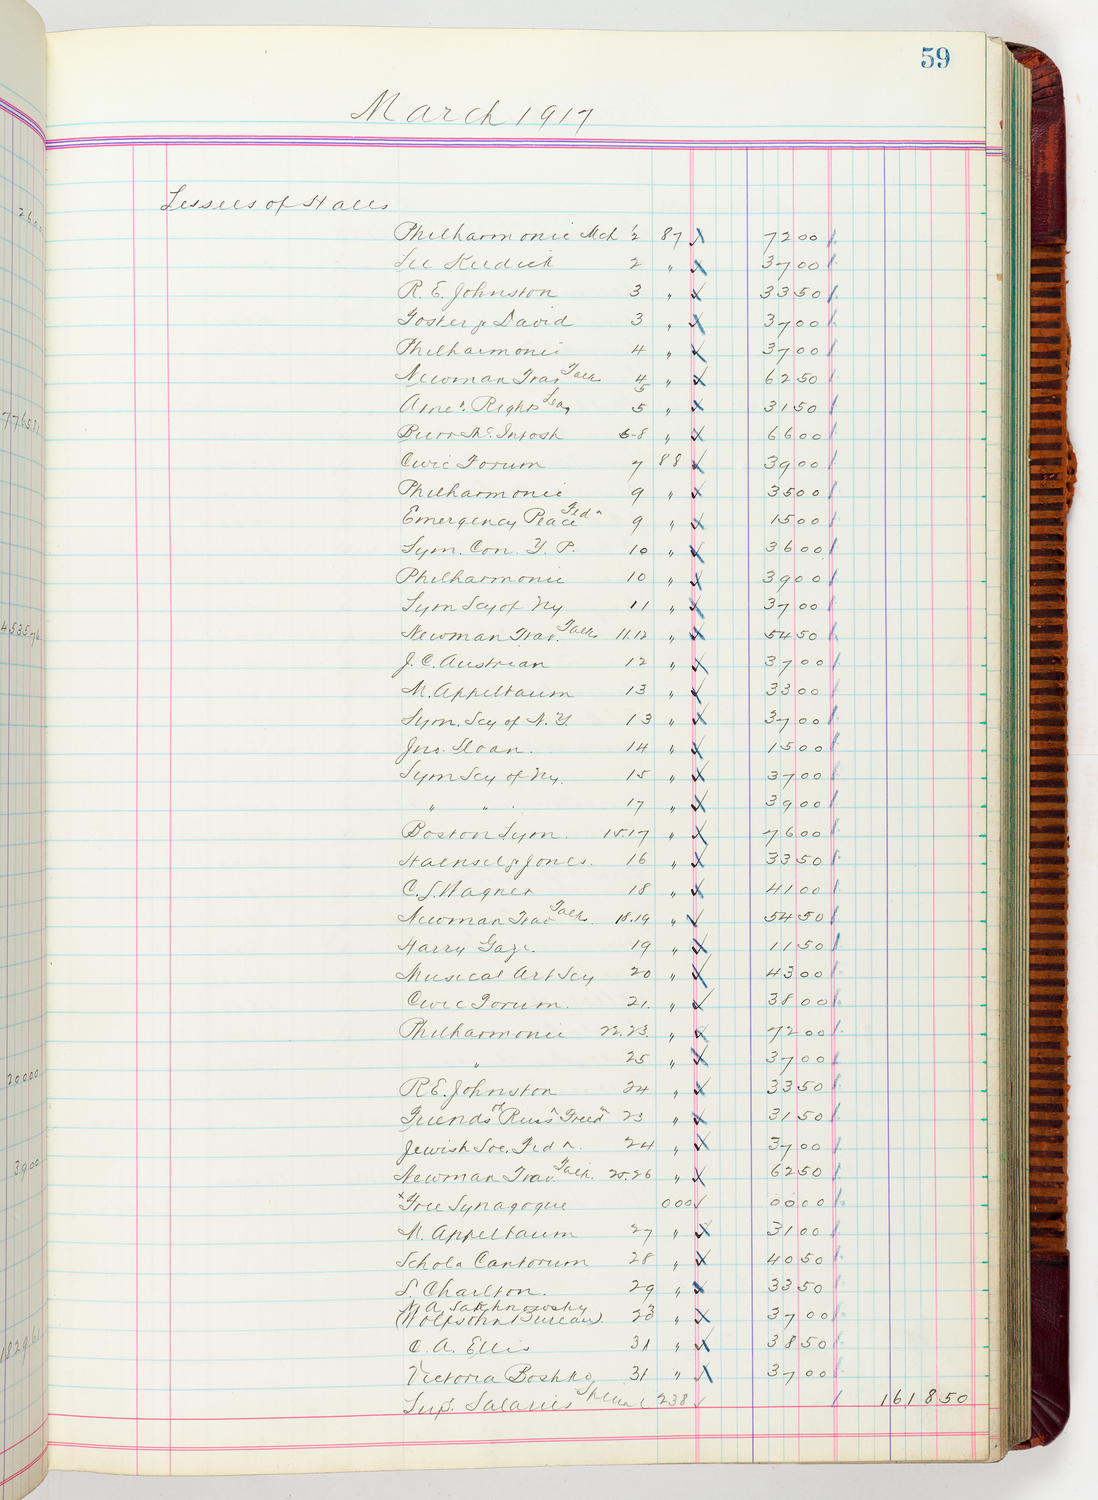 59
March 1917
Lessees of Halls
Philharmonic Mch 1/2 87 7200
Lee Keedick 2 " 3700
R. E. Johnston 3 " 3350
Foster & David 3 " 3700
Philharmonic 4 " 3700
Newman Trav Talk 4 5 " 6250
Amer. Rights Leag 5 " 3150
Burr Mc. Intosh 6-8 " 6600
Civic Forum 7 88 3900
Philharmonic 9 " 3500
Emergency Peace Fedn 9 " 1500
Sym. Con. Y. P. 10 " 3600
Philharmonic 10 " 3900
Sym Scy of Ny 11 " 3700
Newman Trav. Talk 11.12 " 5450
J. C. Austrian 12 " 3700
M. Appelbaum 13 " 3300
Sym. Scy of N. Y. 13 " 3700
Jno. Sloan. 14 " 1500
Sym Scy of Ny. 15 " 3700
" " 17 " 3900
Boston Sym. 15.17 " 7600
Haensel & Jones. 16 " 3350
C. S. Wagner 18 " 4100
Newman Trav Talk. 18.19 " 5450
Harry Gaze. 19 " 1150
Musical Art Scy 20 " 4300
Civic Forum. 21. " 3800
Philharmonic 22.23. " 7200
" 25 " 3700
R E. Johnston 24 " 3350
Friends of Russn Freedm 23 " 3150
Jewish Soc. Fedn. 24 " 3700
Newman Trav. Talk. 25.26 " 6250
x Free Synagogue 000 0000
M. Appelbaum 27 " 3100
Schola Cantorum 28 " 4050
S. Charlton. 29 " 3350
M A. Sakhnowsky
(Wolfsohn Bureau). 23 " 3700
C. A. Ellis 31 " 3850
Victoria Boshko 31 " 3700
Sup. Salaries Special 238 161850